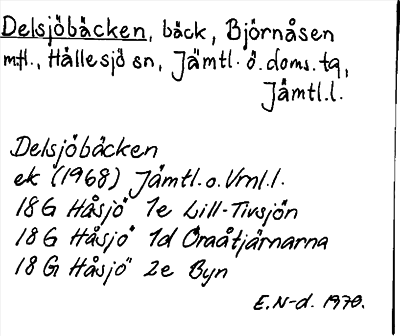 Delsjöbäcken, bäck, Björnåsen
mfl., Hällesjö sn, Jämtl. ö. doms. tg,
Jämtl.l.
Delsjöbäcken
ek (1968) Jämtl. o. Vrnl.l.
18 G Håsjö 1e Lill-Tivsjön
18 G Håsjö 1d Öraåtjärnarna
18 G Håsjö 2e Byn
E.N-d. 1970.